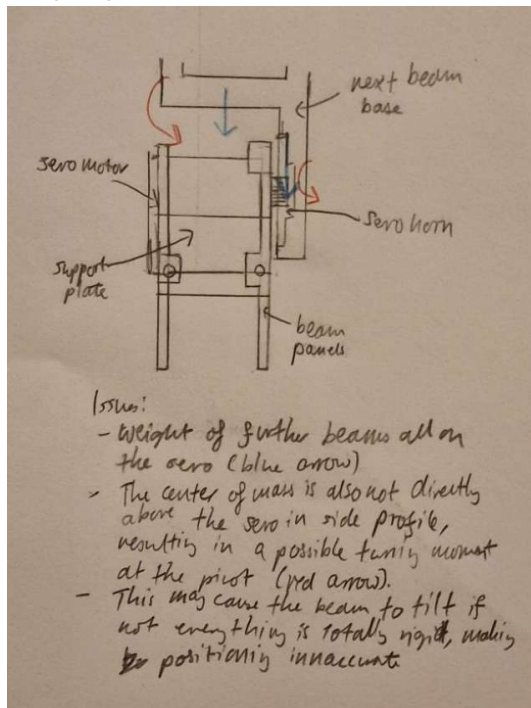 next beam
base
servo motor
servo horn
support
plate
beam
panels
Issues:
- Weight of further beams all on
the servo (blue arrow)
- The center of mass is also not directly
above the servo in side profile,
resulting in a possible turning moment
at the pivot (red arrow).
- This may cause the beam to tilt if
not everything is totally rigid, making
positioning innaccurate